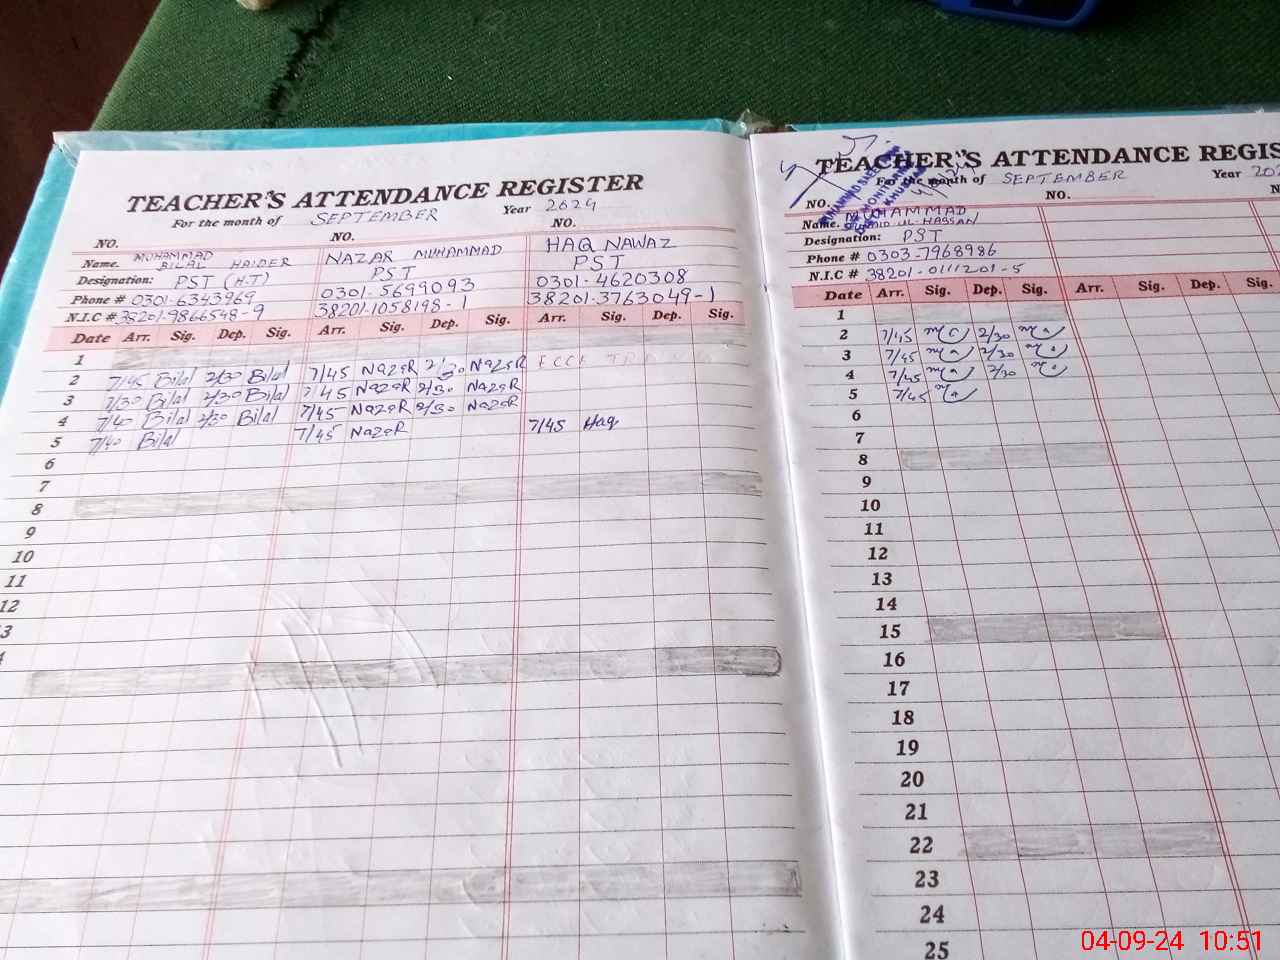 TEACHER'S ATTENDANCE REGISTER
For the month of SEPTEMBER Year 2024
NO. NO. NO.
Name. MUHAMMAD BILAL HAIDER NAZAR MUHAMMAD HAQ NAWAZ
Designation: PST (H.T) PST PST
Phone # 0301-6343969 0301-5699093 0301-4620308
N.I.C # 38201-9866548-9 38201-1058198-1 38201-3763049-1
Date Arr. Sig. Dep. Sig. Arr. Sig. Dep. Sig. Arr. Sig. Dep. Sig.
1
2 7/45 Bilal 2/30 Bilal 7/45 NazeR 2/30 NazeR
3 7/30 Bilal 2/30 Bilal 7/45 NazeR 2/30 NazeR
4 7/40 Bilal 2/30 Bilal 7/45 NazeR 2/30 NazeR
5 7/40 Bilal 7/45 NazeR 7/45 Haq
6
7
8
9
10
11
12
TEACHER'S ATTENDANCE REGIS
For the month of SEPTEMBER Year 202
NO. NO.
Name. MUHAMMAD UL HASSAN
Designation: PST
Phone # 0303-7968986
N.I.C # 38201-0111201-5
Date Arr. Sig. Dep. Sig. Arr. Sig. Dep. Sig.
1
2 7/45 2/30
3 7/45 2/30
4 7/45 2/30
5 7/45
6
7
8
9
10
11
12
13
14
15
16
17
18
19
20
21
22
23
24
25
04-09-24 10:51